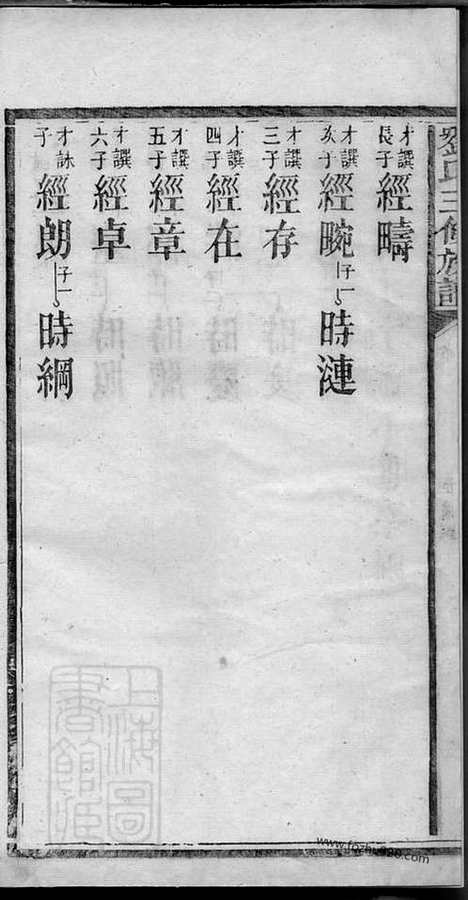 劉氏三修族譜
才譔長子 經疇
才譔次子 經畹 子一 時漣
才譔三子 經存
才譔四子 經在
才譔五子 經章
才譔六子 經卓
才詠子 經朗 子一 時綱
上海圖書館藏
www.fozhu920.com